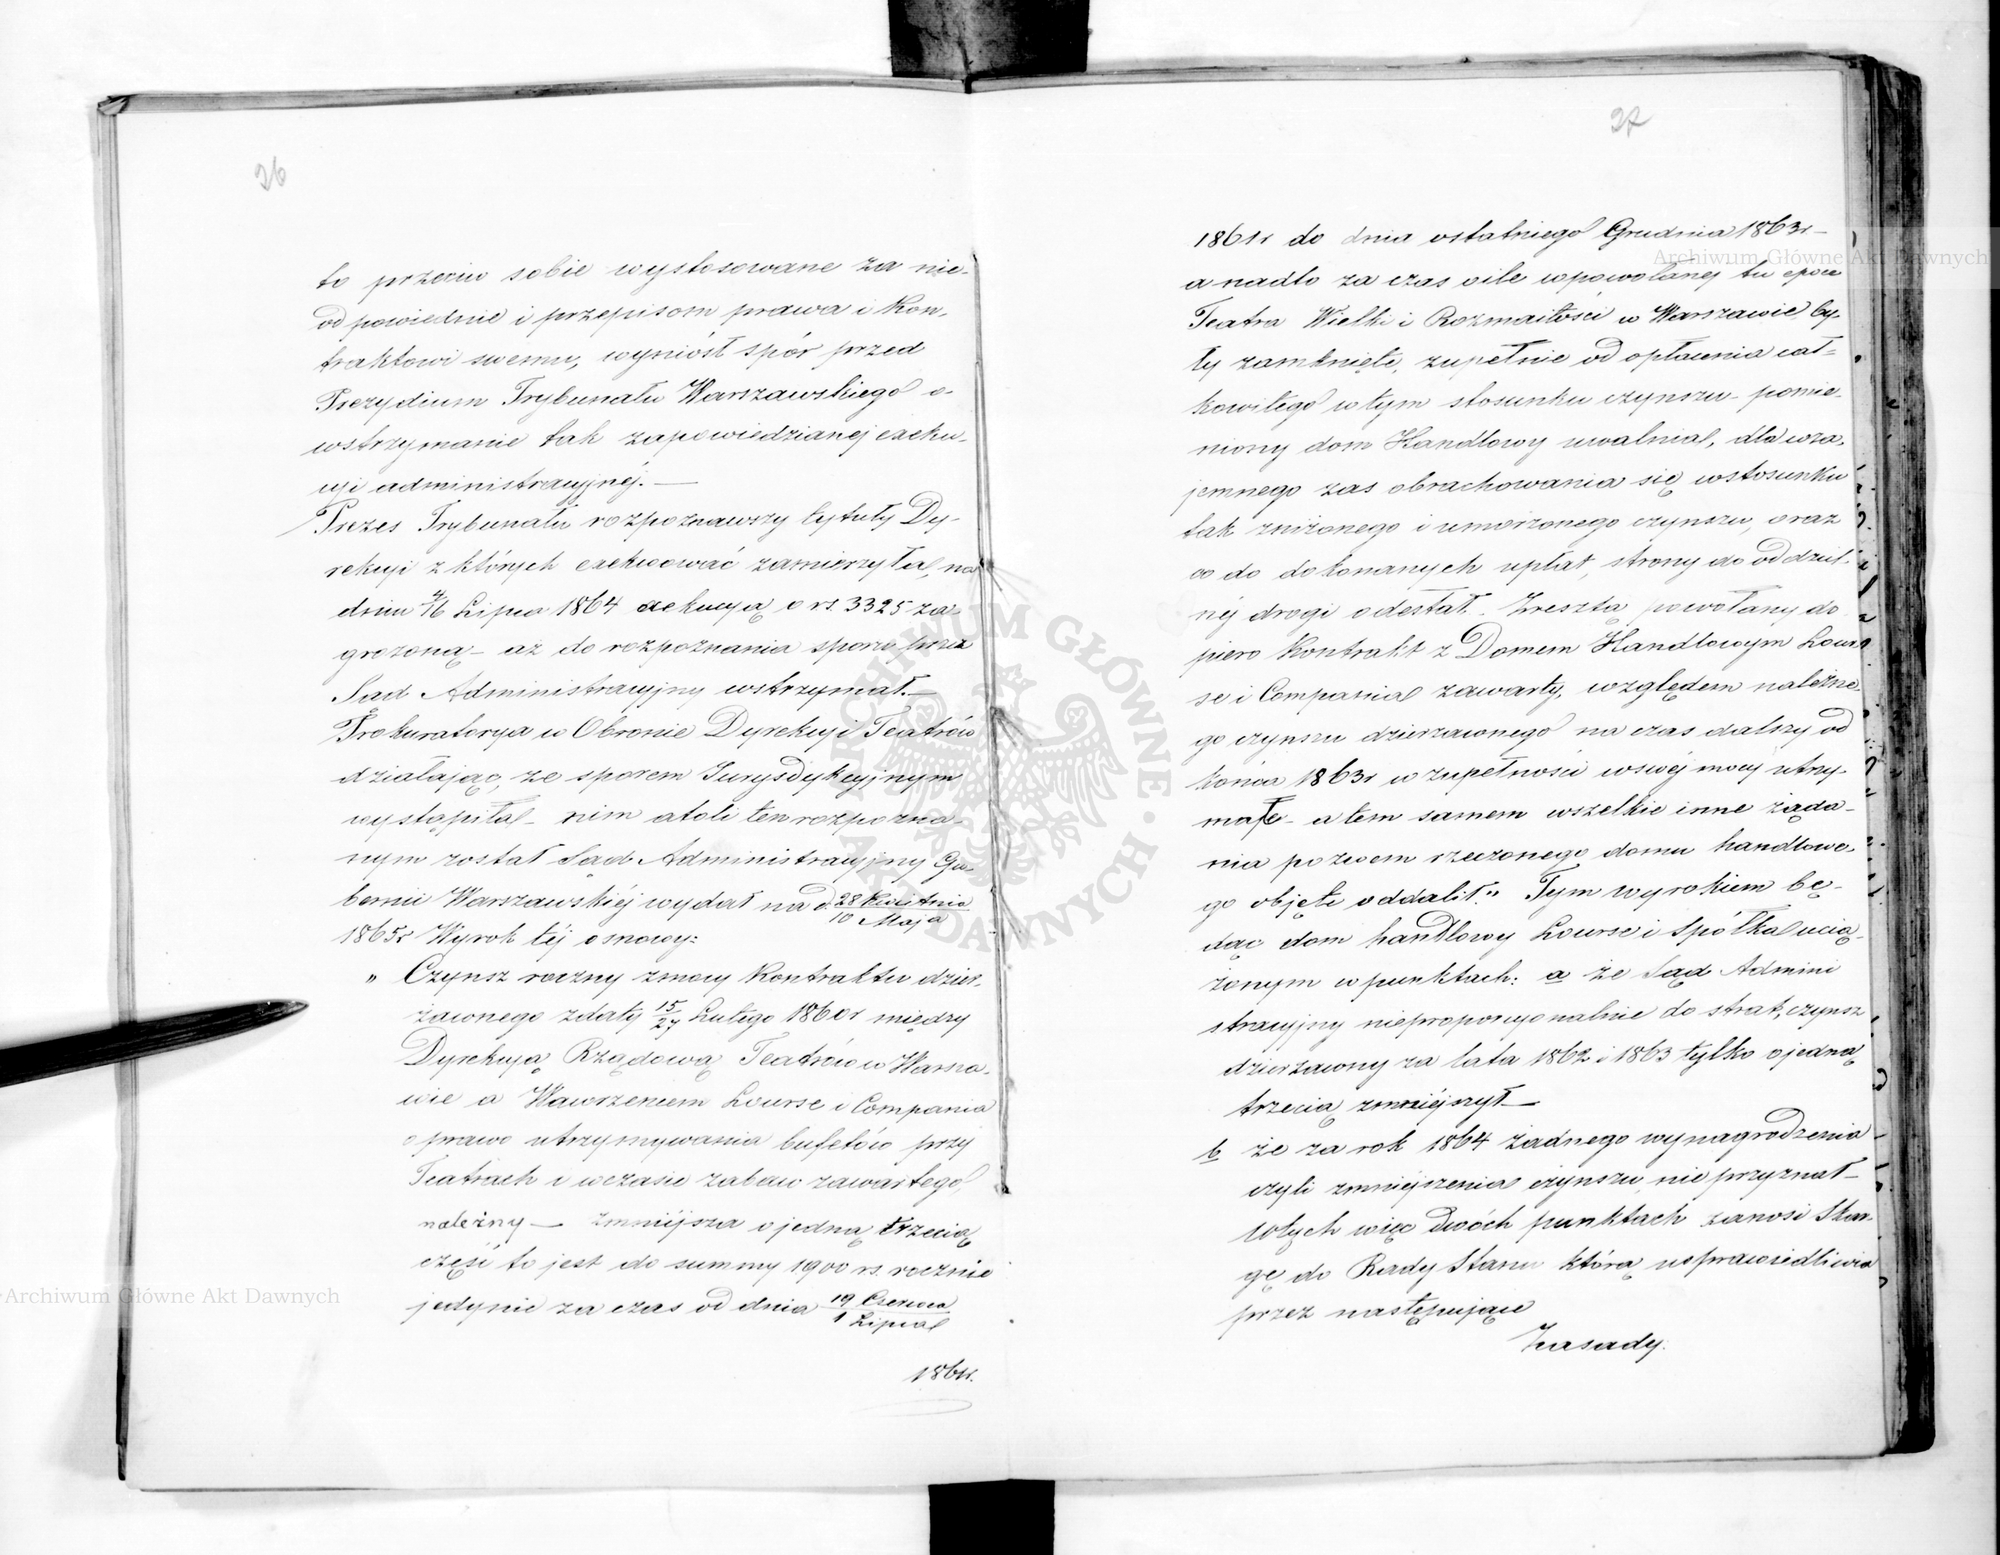 26
to przeciw sobie wystosowane za nie-
odpowiednie i przepisom prawa i Kon-
traktowi swemu, wyniósł spór przed
Prezydium Trybunału Warszawskiego o
wstrzymanie tak zapowiedzianej exeku-
cyi administracyjnéj. —
Prezes Trybunału rozpoznawszy tytuły Dy-
rekcyi z których exekwować zamierzyła, na
dniu 4/16 Lipca 1864 exekucyą o rs. 3325 za-
grożoną – aż do rozpoznania sporu przez
Sąd Administracyjny wstrzymał. —
Prokuratorya w Obronie Dyrekcyi Teatrów
działając, ze sporem Jurysdykcyjnym
wystąpiła – nim atoli ten rozpozna-
nym został Sąd Administracyjny Gu-
bernii Warszawskiéj wydał na d. 28 Kwietnia / 10 Maja
1865r Wyrok téj osnowy:
„ Czynsz roczny z mocy Kontraktu dzier-
żawnego z daty 15/27 Lutego 1860r między
Dyrekcyą Rządową Teatrów w Warsza-
wie a Wawrzeńcem Lourse i Compania
o prawo utrzymywania bufetów przy
Teatrach i w czasie zabaw zawartego,
należny — zmniejsza o jedną trzecią
część to jest do summy 1900 rs. rocznie
jedynie za czas od dnia 19 Czerwca / 1 Lipca
1861r.
27
1861r do dnia ostatniego Grudnia 1863r –
a nadto za czas o ile w powołanej tu epoce
Teatra Wielki i Rozmaitości w Warszawie by-
ły zamknięte, zupełnie od opłacenia cał-
kowitego w tym stosunku czynszu – pomie-
niony dom Handlowy uwalnia, dla wza-
jemnego zaś obrachowania się w stosunku
tak zniżonego i umorzonego czynszu, oraz
co do dokonanych upłat, strony do oddziel-
néj drogi odesłał. Zresztą powołany do-
piero Kontrakt z Domem Handlowym Lour-
se i Compania zawarty, względem należne-
go czynszu dzierżawnego na czas dalszy od
końca 1863r w zupełności w swéj mocy utrzy-
mał – a tem samem wszelkie inne żąda-
nia pozwem rzeczonego domu handlowe-
go objęte oddalił." Tym wyrokiem bę-
dąc dom handlowy Lourse i Spółka ucią-
żonym w punktach: a że Sąd Admini
stracyjny nieproporcyonalnie do strat, czynsz
dzierżawny za lata 1862 i 1863 tylko o jedną
trzecią zmniejszył —
b że za rok 1864 żadnego wynagrodzenia
czyli zmniejszenia czynszu nie przyznał –
w tych więc dwóch punktach zanosi Skar-
gę do Rady Stanu którą usprawiedliwia
przez następujące
Zasady:
Archiwum Główne Akt Dawnych
Archiwum Główne Akt Dawnych
ARCHIWUM GŁÓWNE AKT DAWNYCH